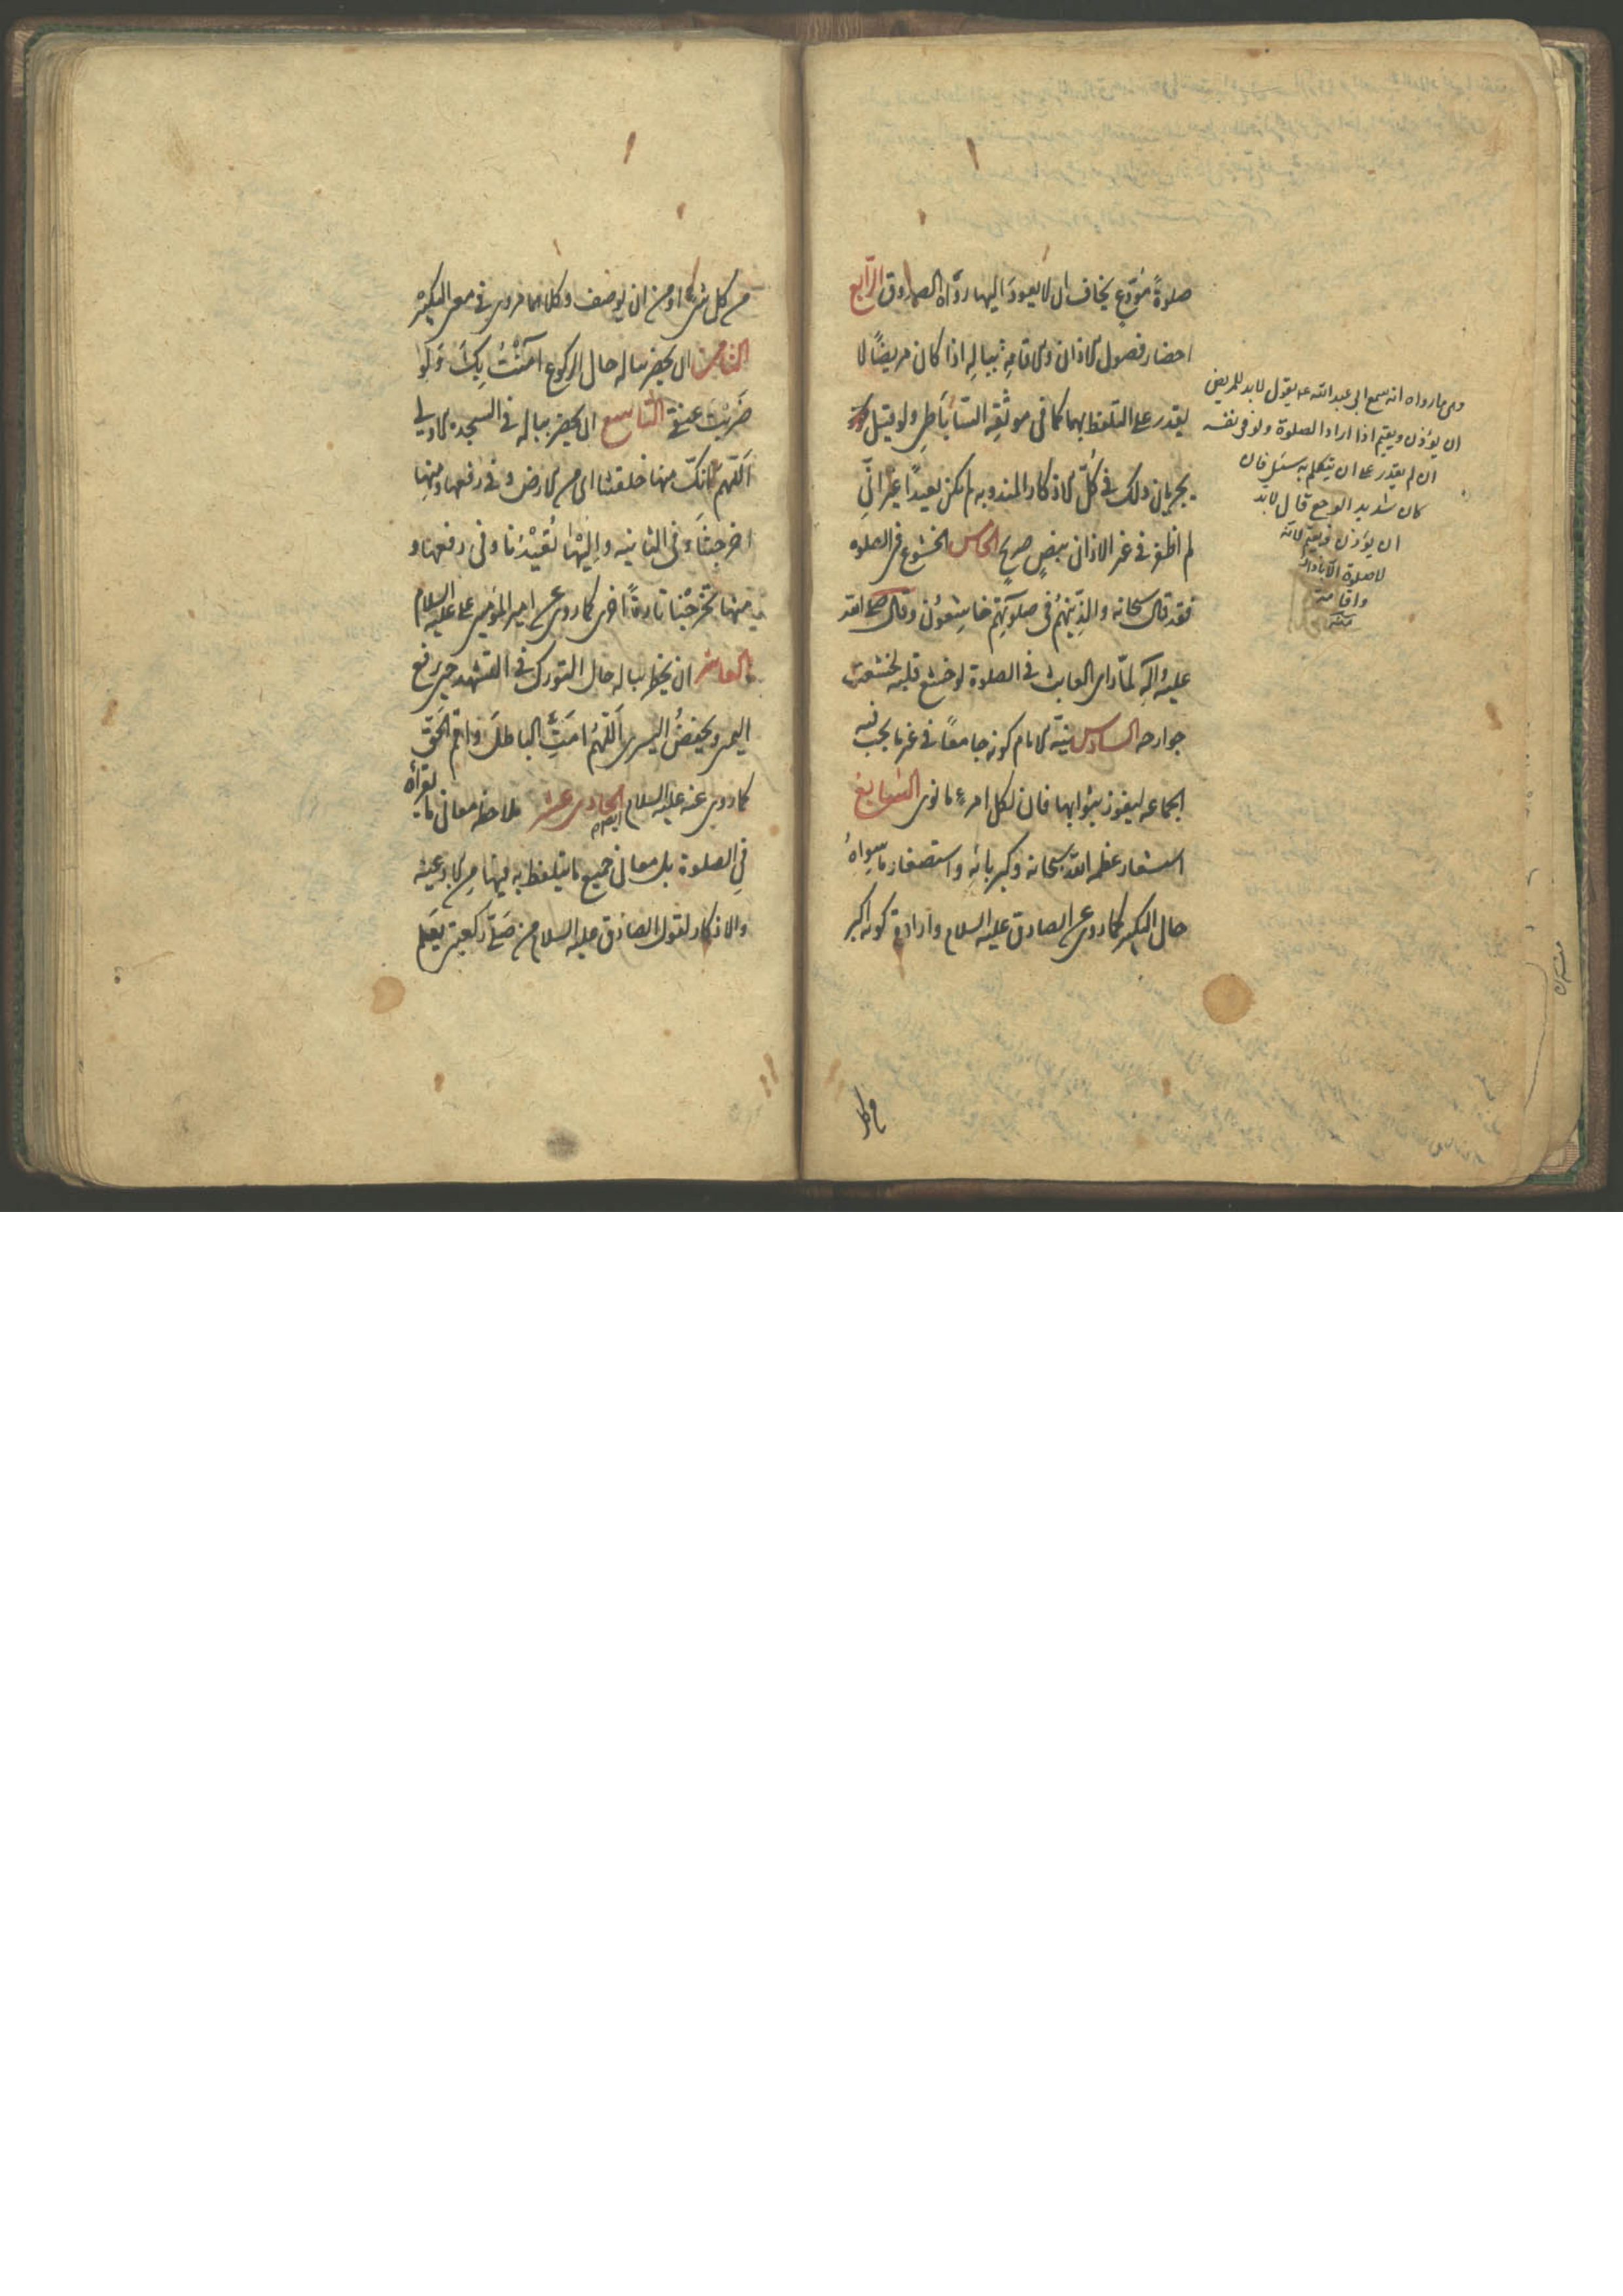 صلوةً مُوَدِّعٍ يخاف ان لا يعودَ اليها رواه الصدوق الرّابع
احضار فصول الاذان والاقامةِ ببالِهِ اذا كان مريضًا لا
يقدر على التلفظ بهما كما في موثقِه السّاباطي ولو قيل
بجريان ذلك في كُلّ الاذكار المندوبه لم يكن بعيدًا غير انّي
لم اظفر في غير الاذان بنصٍ صريحٍ الخامس الخشوع في الصلوه
فقد قال سبحانه والذين هُم في صلوتهِم خاشِعُون وقال صلى الله
عليه واله لمّا راى العابث في الصلوة لو خشع قلبه لخشعت
جوارحه السادس نيّة الامام كونه جامعًا في غير ما يجب فيه
الجماعه ليفوز بثوابها فان لكل امرءٍ ما نوى السّابع
استشعار عظمه الله سبحانه وكبريائِهِ واستصغار ما سِواهُ
حال التكبير كما روى عن الصادق عليه السلام وارادة كونه اكبر
من كل
وهى ما رواه انه سمع ابى عبد الله ع يقول لابد للمريض
ان يؤذن ويقيم اذا اراد الصلوة ولو فى نفسه
ان لم يقدر على ان يتكلم به سئل فان
كان شديد الوجع قال لابد
ان يؤذن ويقيم لانّه
لا صلوة الّا باذان
واقامة
من كل شئ او من ان يوصف وكلاهما مروى في معنى التكبير
الثامن ان يحضر بباله حال الركوع آمَنْتُ بِكَ وَلَو
ضَرَبْتَ عنقي التاسع ان يحضر بباله في السجده الاولى
اللّهُمّ انّك منها خلقتنا اى من الارض و في رفعها ومنها
اخرجتنا وفى الثانيه واِليْها تُعيْدُنا وفى رفعها و
منها تُخرجُنا تارةً اُخرى كما روى عن امير المؤمنين على عليه السلام
العاشر ان يخطر بباله حال التورك في التشهد حين يرفع
اليمنى ويخفضُ اليسرى اَللّهُمَّ اَمِتِ الباطلَ واَقِم الحَقّ
كما روى عنه عليه السلام ايضا الحادي عشر ملاحظه معانى ما يقراهُ
في الصلوة بل معانى جميع ما يتلفظ به فيها مِن الادعيه
والاذكار لقول الصادق عليه السلام من صَلّى ركعتين يعَلم